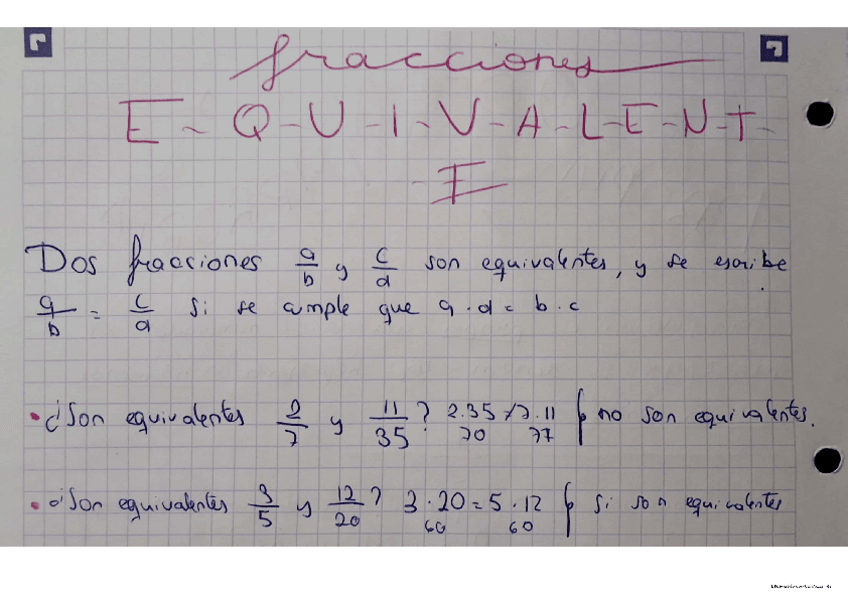 fracciones
E-Q-U-I-V-A-L-E-N-T-
E
Dos fracciones a/b y c/d son equivalentes, y se escribe
a/b = c/d si se cumple que a·d = b·c
• ¿Son equivalentes 2/7 y 11/35? 2·35 ≠ 7·11 no son equivalentes.
70 77
• ¿Son equivalentes 3/5 y 12/20? 3·20 = 5·12 si son equivalentes
60 60